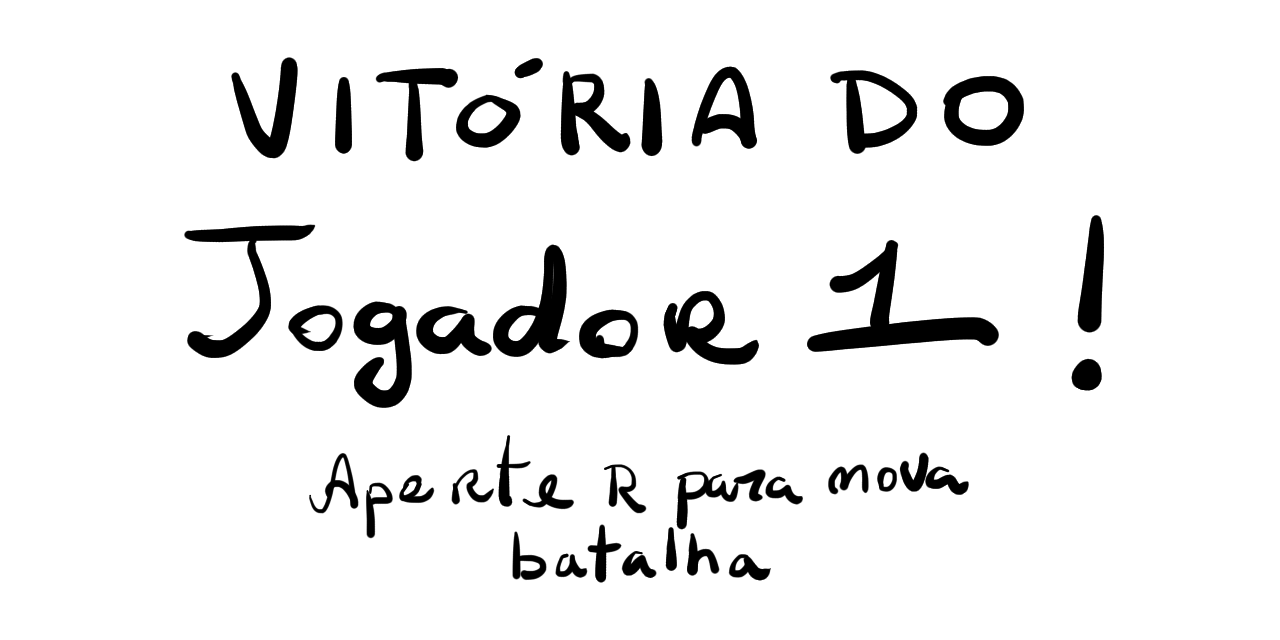 VITÓRIA DO
Jogador 1 !
Aperte R para nova
batalha